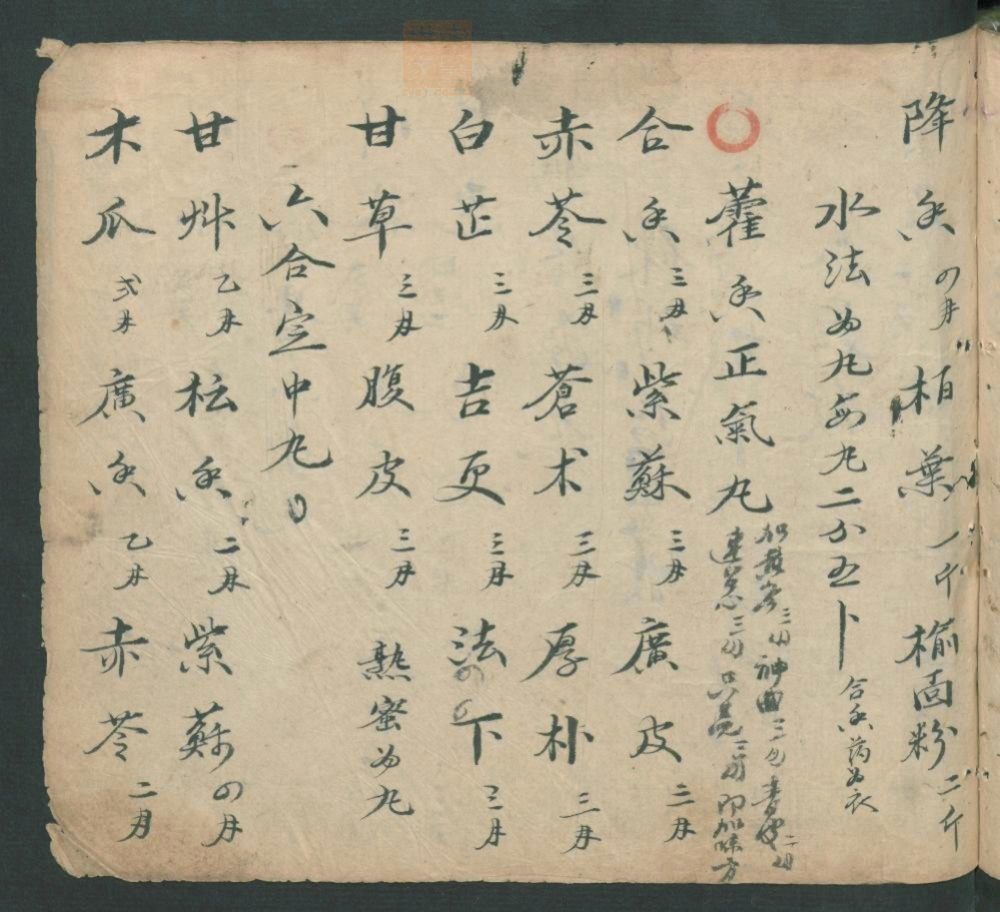 降香 四两 柏葉 一斤 榆面粉 二斤
水法为丸每丸二分五 合香 为衣
藿香正氣丸
三两 神曲 三两 二两
三两 只壳 三两 即加味方
合香 三两 紫蘇 三两 廣皮 二两
赤苓 三两 蒼术 三两 厚朴 三两
白芷 三两 吉更 三两 法下 三两
甘草 三两 腹皮 三两 熟蜜为丸
六合定中丸
甘艸 乙两 枟香 二两 紫蘇 四两
木瓜 弍两 廣香 乙两 赤苓 二两